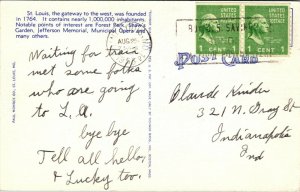 St. Louis, the gateway to the west, was founded
in 1764. It contains nearly 1,000,000 inhabitants.
Notable points of interest are Forest Park, Shaw's
Garden, Jefferson Memorial, Municipal Opera and
many others.
Waiting for train
met some folks
who are going
to L.A.
bye bye
Tell all hello,
& Lucky too.
UNITED STATES
POSTAGE
1 CENT 1
UNITED STATES
POSTAGE
1 CENT 1
POST CARD
Claude Kinder
321 N. Gray St
Indianapolis
Ind